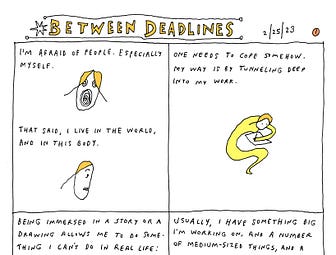 BETWEEN DEADLINES
2/25/23
I'M AFRAID OF PEOPLE. ESPECIALLY
MYSELF.
THAT SAID, I LIVE IN THE WORLD,
AND IN THIS BODY.
ONE NEEDS TO COPE SOMEHOW.
MY WAY IS BY TUNNELING DEEP
INTO MY WORK.
BEING IMMERSED IN A STORY OR A
DRAWING ALLOWS ME TO DO SOME-
THING I CAN'T DO IN REAL LIFE:
USUALLY, I HAVE SOMETHING BIG
I'M WORKING ON, AND A NUMBER
OF MEDIUM-SIZED THINGS, AND A